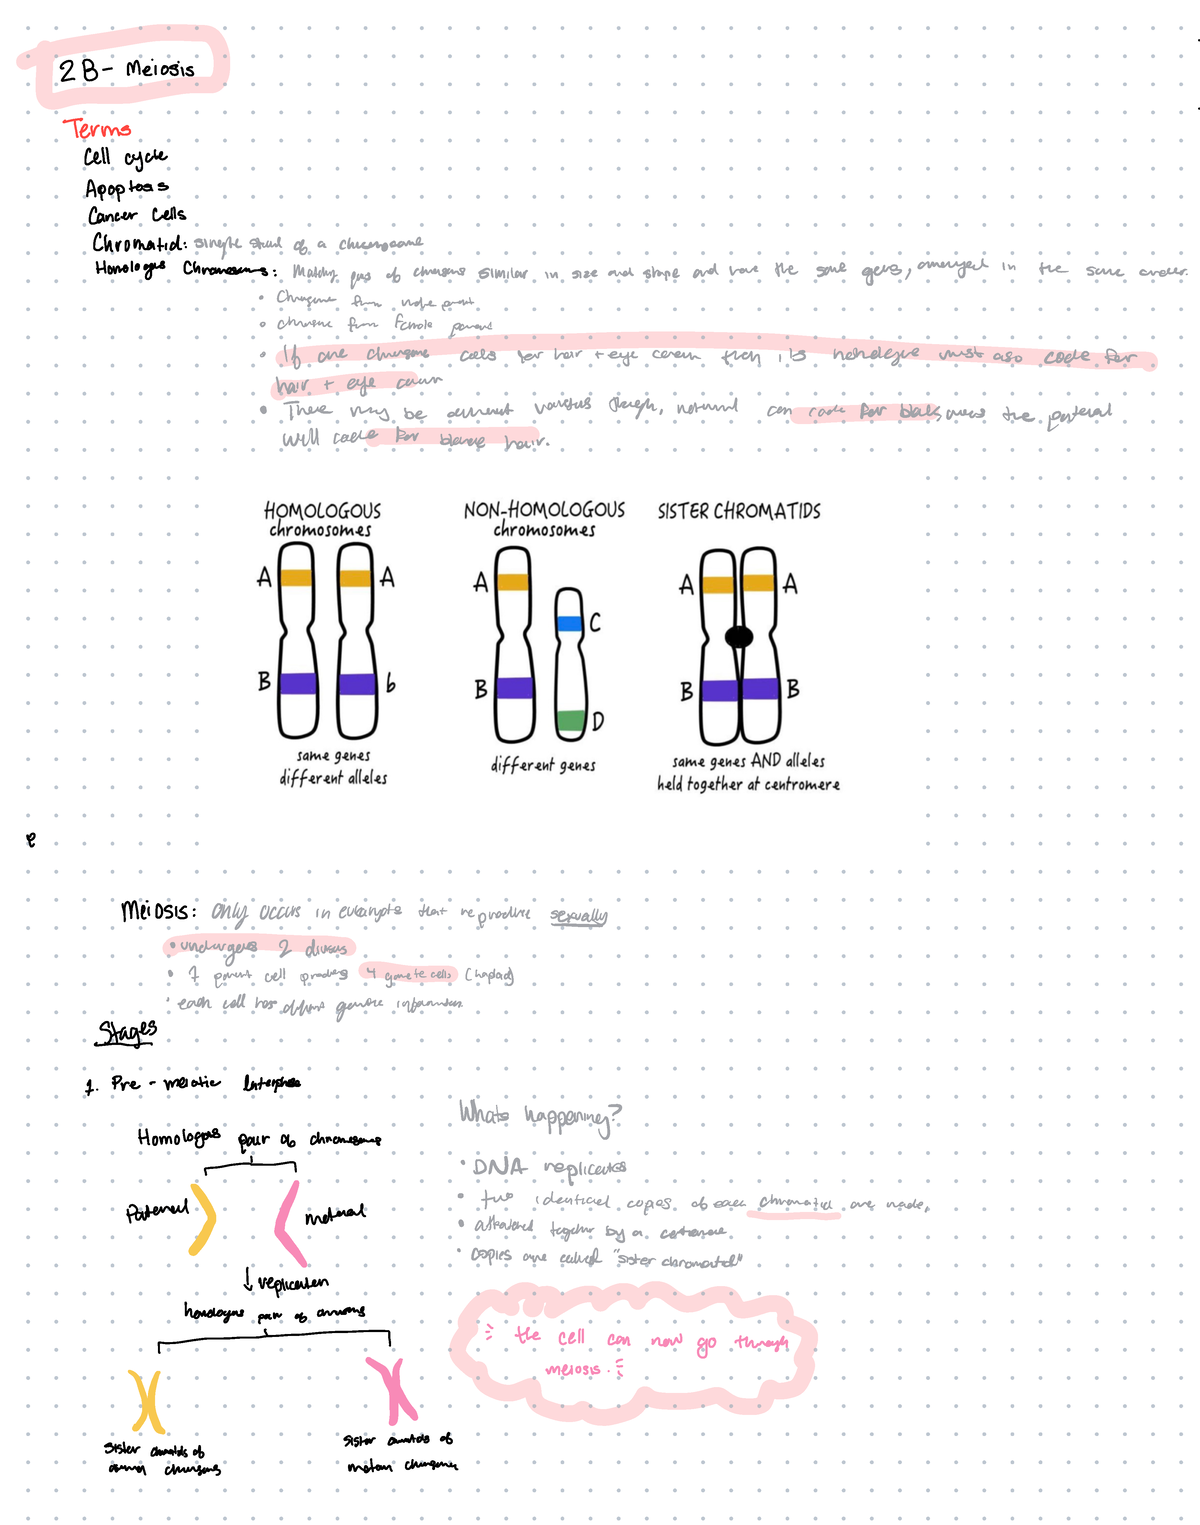 2B - Meiosis
Terms
Cell cycle
Apoptosis
Cancer Cells
Chromatid: single strand of a chromosome
Homologus Chromosomes: Matching pairs of chromosomes similar in size and shape and have the same genes, arranged in the same order.
• Chromosome from male parent
• chromosome from female parent
• If one chromosome codes for hair + eye then its homologue must also code for
hair + eye colour
• There may be different versions though, maternal can code for black, the paternal
will code for blonde hair.
HOMOLOGOUS
chromosomes
NON-HOMOLOGOUS
chromosomes
SISTER CHROMATIDS
A A
B b
A
C
B
D
A A
B B
same genes
different alleles
different genes
same genes AND alleles
held together at centromere
e
Meiosis: only occurs in eukaryots that reproduce sexually
• undergoes 2 divisions
• 1 parent cell produces 4 gamete cells (haploid)
• each cell has different genetic information
Stages
1. Pre-meiotic Interphase
Homologous pair of chromosomes
Paternal
maternal
↓ replication
homologus pair of chromosomes
Sister chromatids of
chromosomes
Sister chromatids of
chromosome
Whats happening?
• DNA replicates
• two identical copies of each chromatid are made,
• attatched together by a centromere
• copies are called "sister chromatid"
the cell can now go through
meiosis.